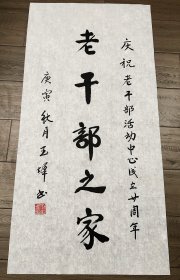 庆祝老干部活动中心成立廿周年
老干部之家
庚寅秋月王烽书